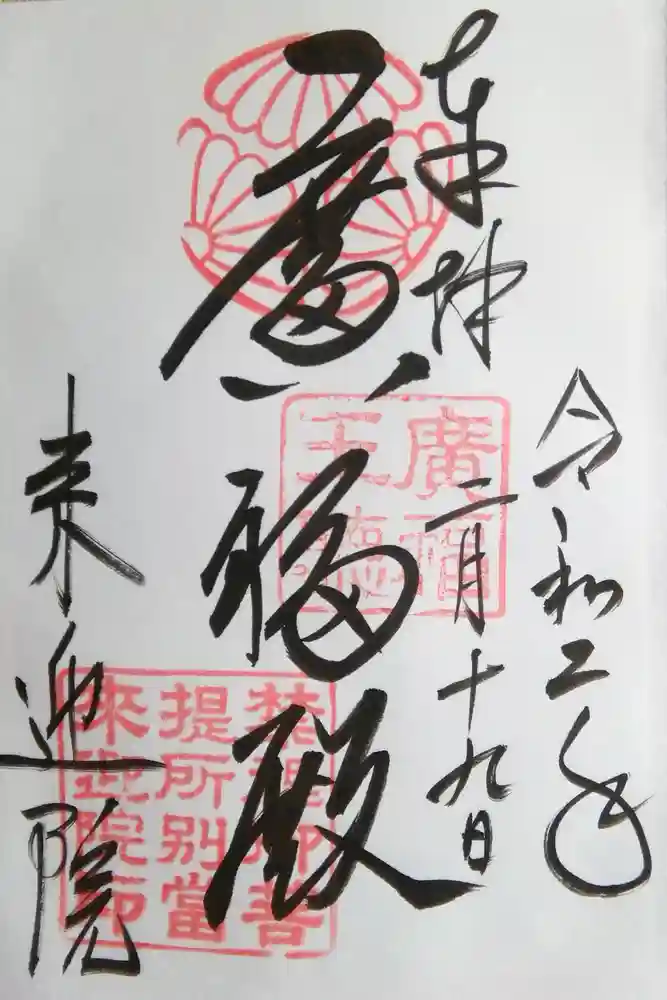 奉拝
令和二年
二月十九日
廣福殿
来迎院
禁裡御菩
提所別當
來迎院印